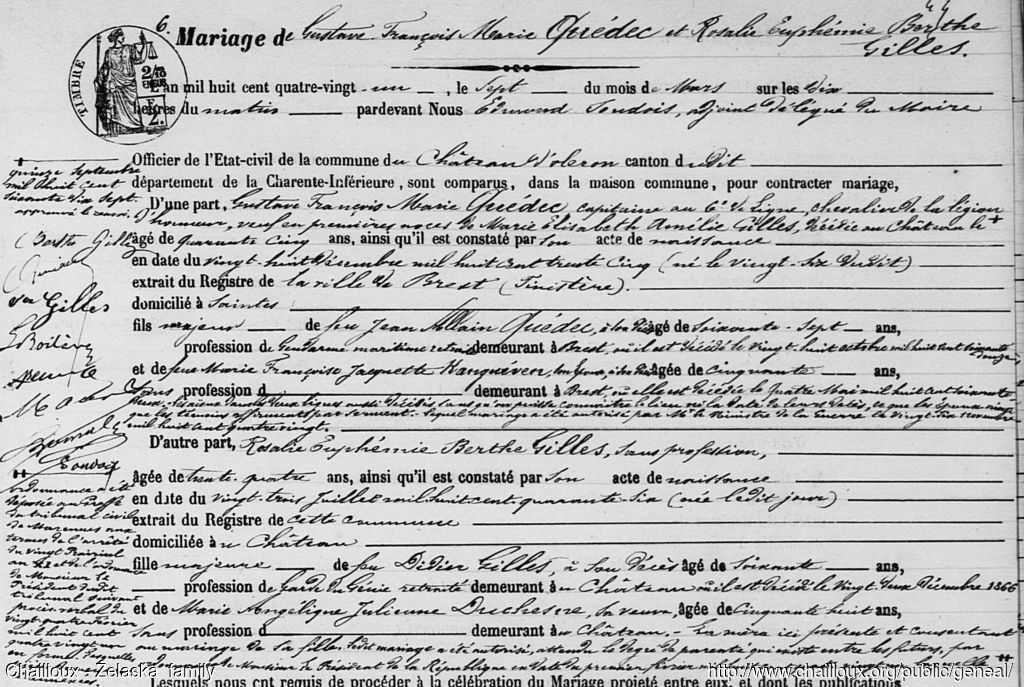 6.
44
Mariage de Gustave François Marie Quédec et Rosalie Euphémie Berthe
Gilles.
TIMBRE
L'an mil huit cent quatre-vingt-un, le Sept du mois de Mars sur les Dix
heures du matin pardevant Nous Edmond adjoint délégué du Maire
Officier de l'Etat-civil de la commune du Château d'Oleron canton dudit
département de la Charente-Inférieure, sont comparus, dans la maison commune, pour contracter mariage,
D'une part, Gustave François Marie Quédec, capitaine au 6e de Ligne, chevalier de la légion
d'honneur, veuf en premières noces de Marie Elisabeth Amélie Gilles, décédée au Château le
âgé de quarante cinq ans, ainsi qu'il est constaté par son acte de naissance
en date du vingt-huit Décembre mil huit cent trente cinq (né le vingt-six dudit)
extrait du Registre de la ville de Brest (Finistère).
domicilié à Saintes
fils majeur de feu Jean Allain Quédec, à son décès âgé de Soixante-Sept ans,
profession de Gendarme maritime retraité demeurant à Brest, où il est décédé le vingt-huit octobre mil huit cent soixante
douze
et de feue Marie Françoise Jacquette âgée de Cinquante ans,
Sans profession d demeurant à Brest, où elle est décédée le quatre Mai mil huit cent soixante
que les témoins affirment par serment. Lequel mariage a été autorisé par Mr le Ministre de la Guerre le vingt six novembre
mil huit cent quatre vingt.
D'autre part, Rosalie Euphémie Berthe Gilles, Sans profession,
âgée de trente quatre ans, ainsi qu'il est constaté par son acte de naissance
en date du vingt-trois Juillet mil huit cent quarante-six (née ledit jour)
extrait du Registre de cette commune
domiciliée à u Château
fille majeure de feu Didier Gilles, à son décès âgé de Soixante ans,
profession de garde du Génie retraité demeurant à u Château où il est décédé le vingt deux Décembre 1866
et de Marie Angélique Julienne Duchesne, sa veuve, âgée de Cinquante huit ans,
Sans profession d demeurant à u Château. La mère ici présente et consentant
au mariage de sa fille. Ledit mariage a été autorisé, attendu le degré de parenté qui existe entre les futurs, par
Monsieur le Président de la République en date du premier février
Lesquels nous ont requis de procéder à la célébration du Mariage projeté entre eux, et dont les publications
quinze Septembre
mil huit cent
soixante dix Sept.
Berthe Gilles
Gilles
ordonnance a été
déposée au greffe
du tribunal civil
de Marennes aux
termes de l'arrêté
du vingt Prairial
de Monsieur le
Président dudit
tribunal suivant
procès verbal du
vingt quatre février
mil huit cent
quatre vingt un
Chailloux - Zeleska family
http://www.chailloux.org/public/geneal/